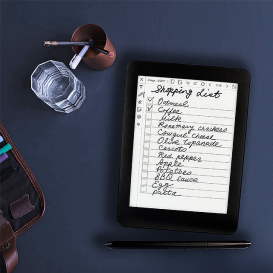 Shopping List
Oatmeal
Coffee
Milk
Rosemary crackers
Cowgirl cheese
Olive tapanade
Carrots
Red pepper
Apple
Potatoes
BBQ sauce
Egg
Pasta